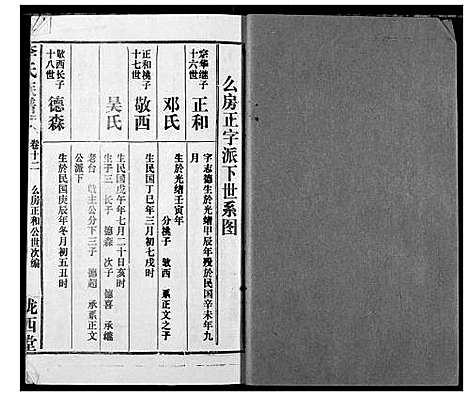 么房正字派下世系图
宗华继子
十六世
正和
字志德生於光绪甲辰年殁於民国辛未年九
月
邓氏
生於光绪壬寅年
分桃子 敬西 系正文之子
正和桃子
十七世
敬西
生民国丁巳年三月初七戌时
吴氏
生民国戊午年七月二十日亥时
生子三 长子 德森 次子 德喜 承继
老台 敬主公分下三子 德超 承系正文
公派下
敬西长子
十八世
德森
生於民国庚辰年冬月初五丑时
李氏族谱
卷十二
么房正和公世次编
陇西堂